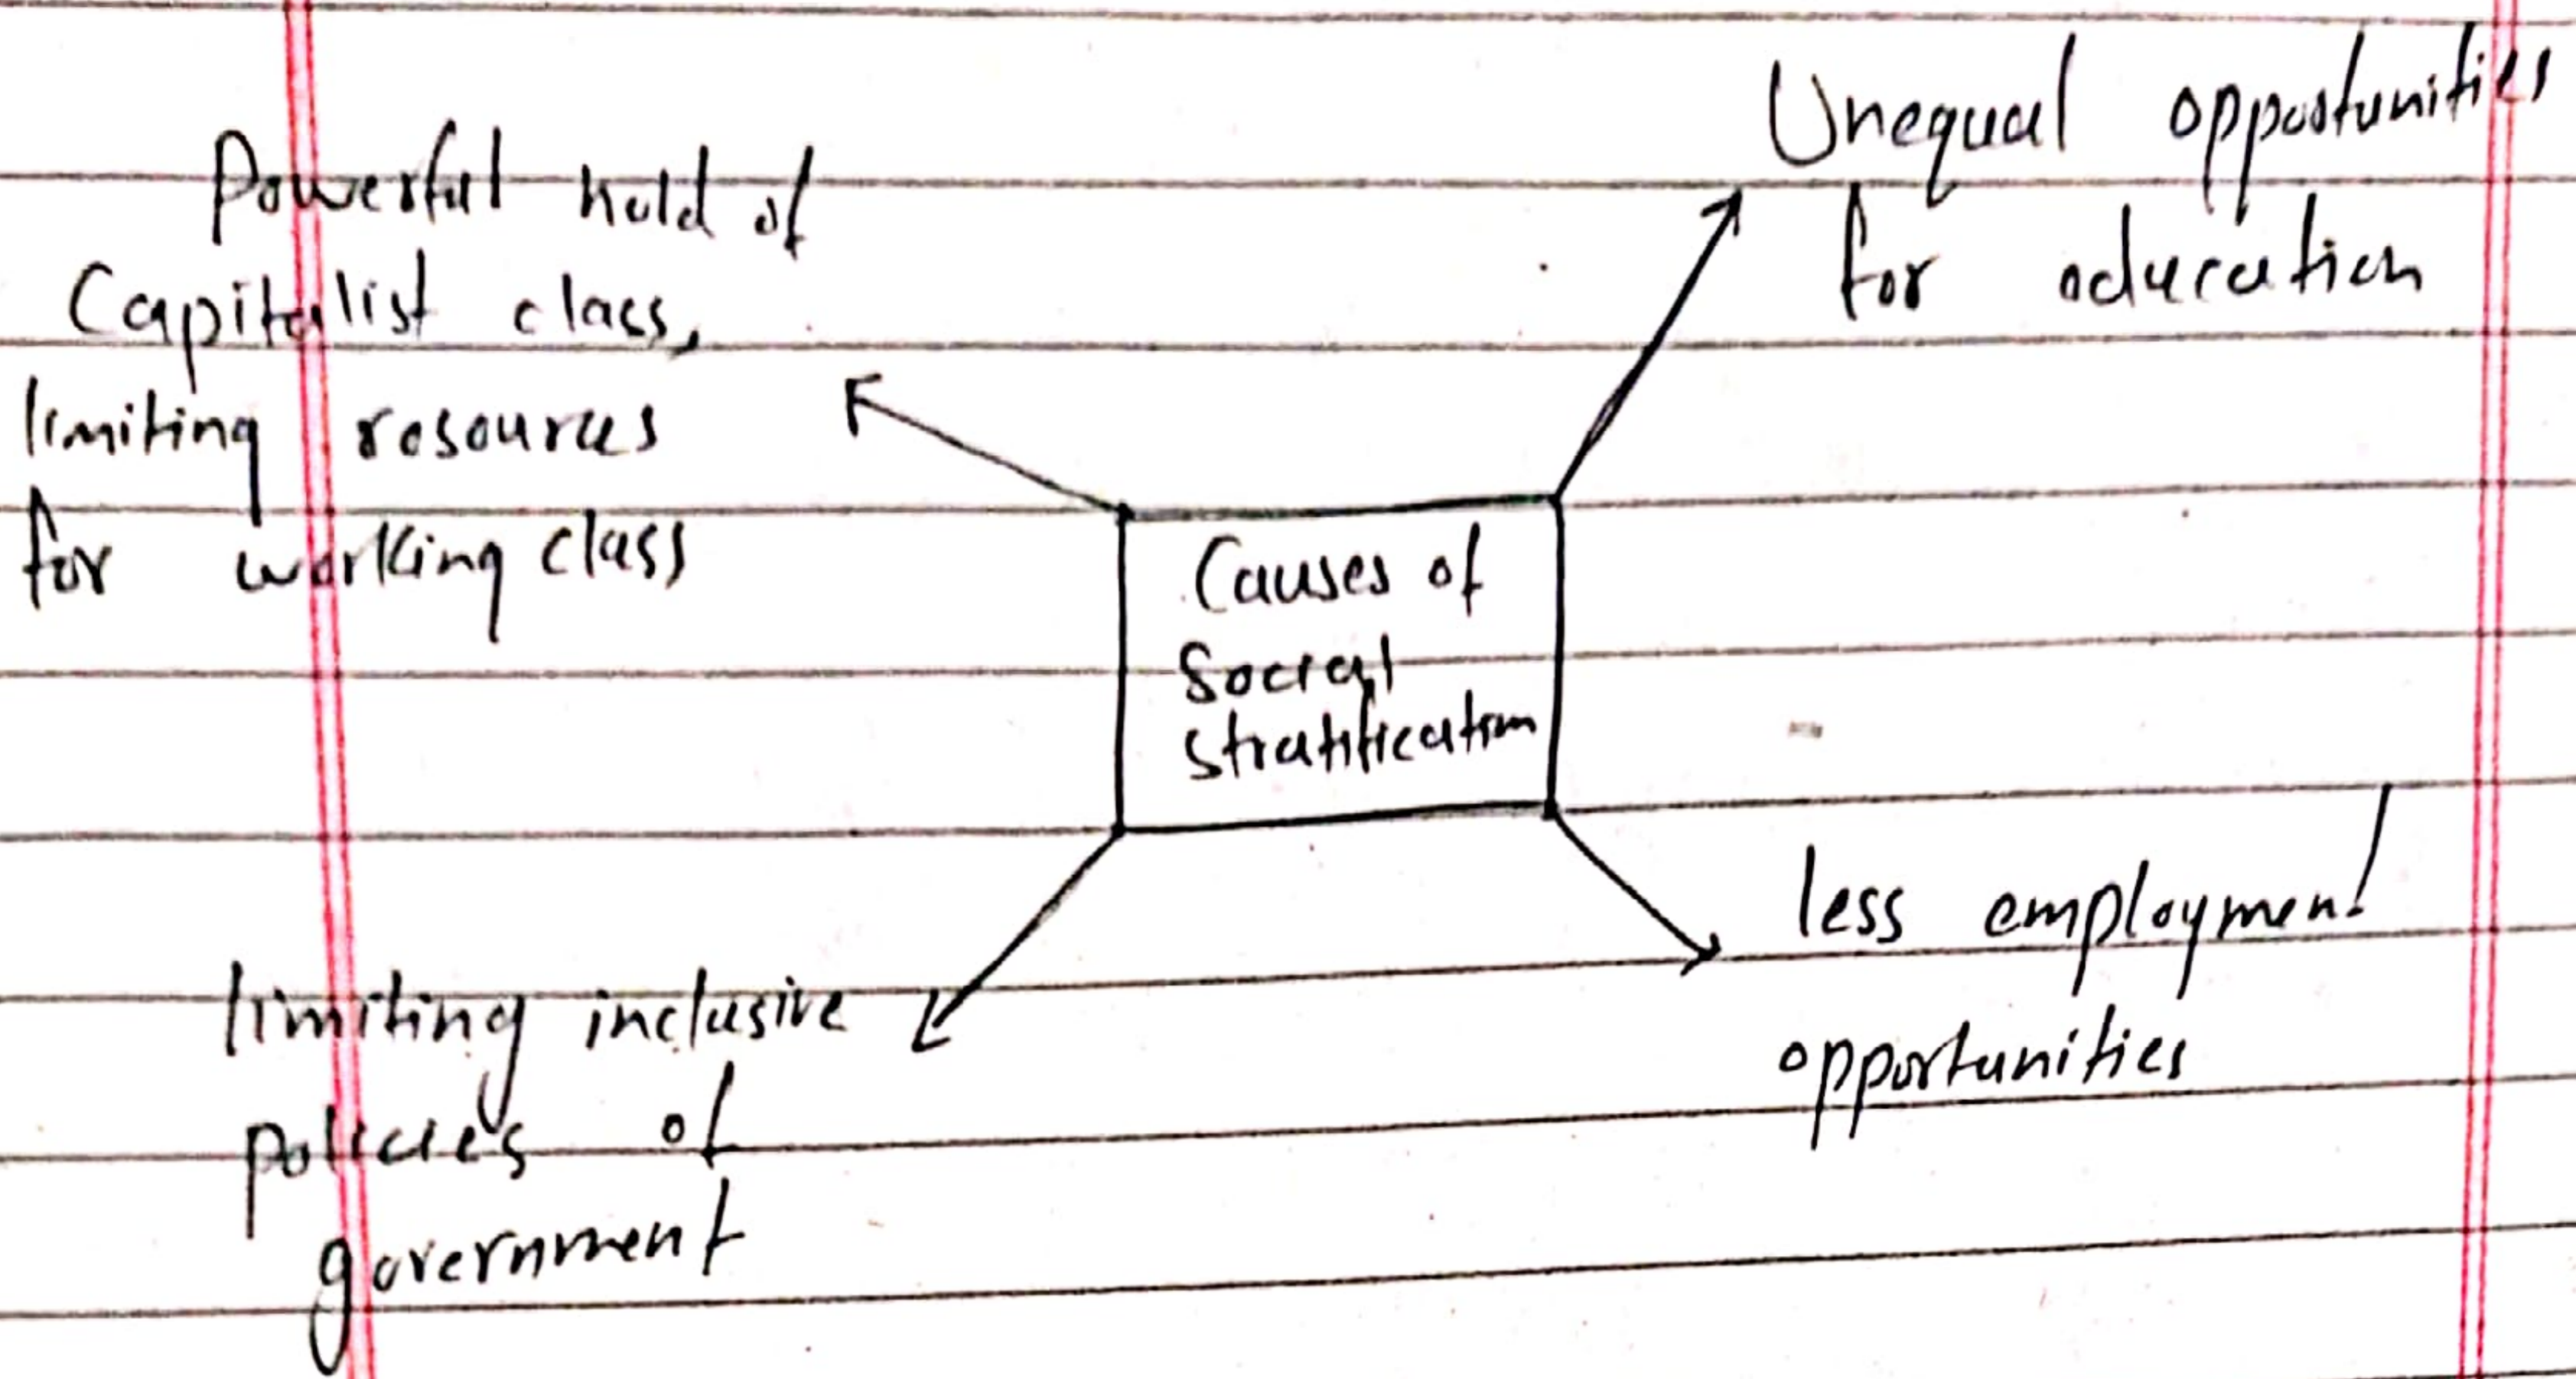 Powerful hold of
Capitalist class,
limiting resources
for working class
Unequal opportunities
for education
Causes of
Social
stratification
limiting inclusive
policies of
government
less employment
opportunities